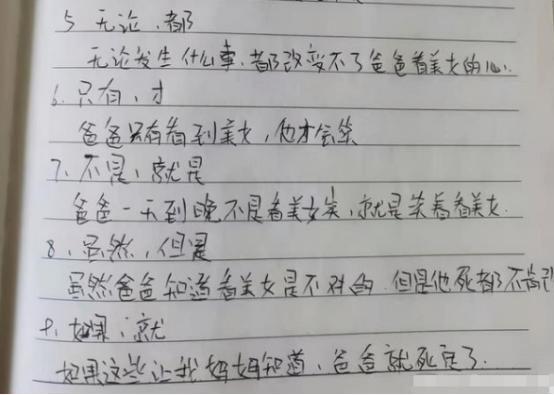 5 无论、都
无论发生什么事,都改变不了爸爸看美女的心.
6、只有、才
爸爸只有看到美女,他才会笑
7、不是、就是
爸爸一天到晚不是看美女笑,就是笑着看美女.
8、虽然,但是
虽然爸爸知道看美女是不对的,但是他死都不肯
9、如果、就
如果这些让我妈妈知道、爸爸就死定了.